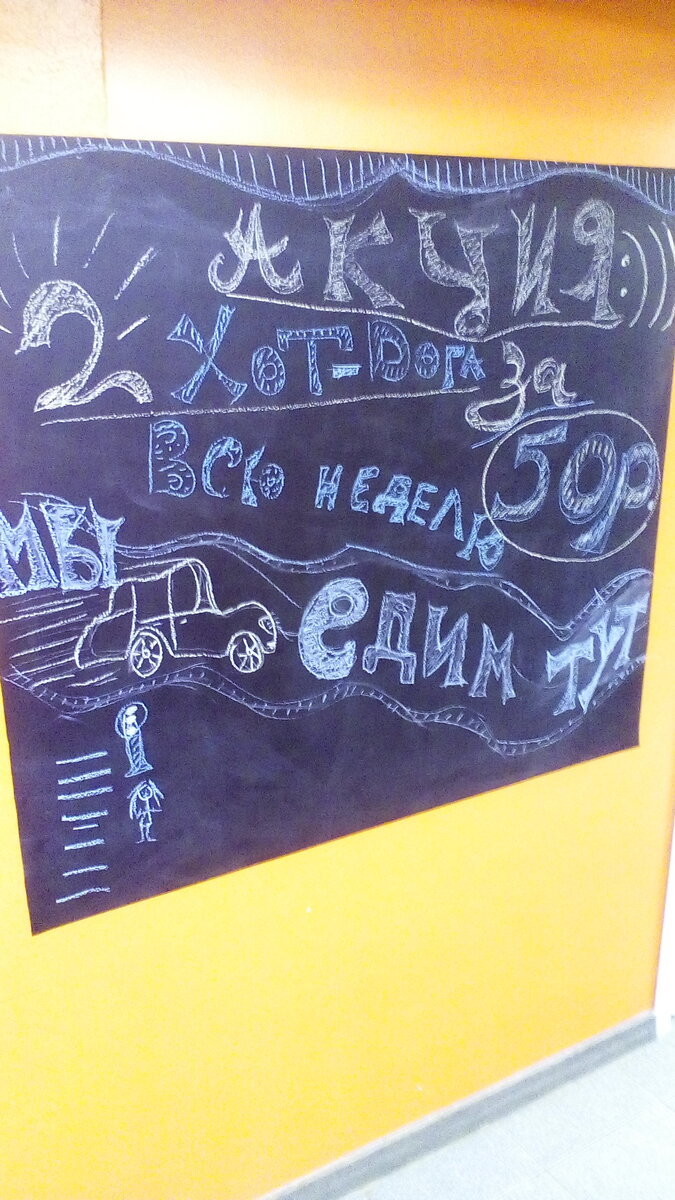 АКЦИЯ:)))
2 ХОТ-DОГА за
50р.
ВСЮ НЕДЕЛЮ
МЫ едим тут